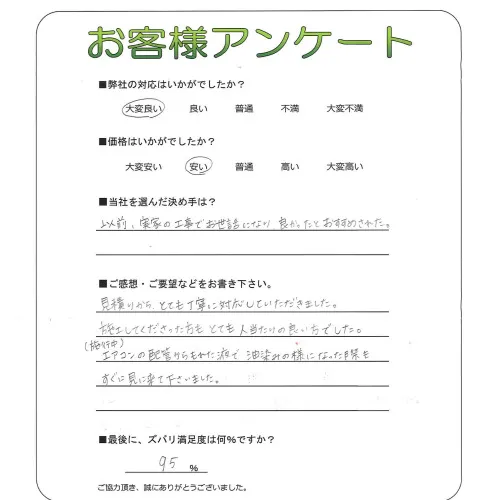 お客様アンケート
■弊社の対応はいかがでしたか？
大変良い 良い 普通 不満 大変不満
■価格はいかがでしたか？
大変安い 安い 普通 高い 大変高い
■当社を選んだ決め手は？
以前、実家の工事でお世話になり良かったとおすすめされた。
■ご感想・ご要望などをお書き下さい。
見積りから とても丁寧に対応していただきました。
施工してくださった方も とても人当たりの良い方でした。
(施行中)
エアコンの配管からもれた液で油染みの様になった際も
すぐに見に来て下さいました。
■最後に、ズバリ満足度は何％ですか？
95 ％
ご協力頂き、誠にありがとうございました。